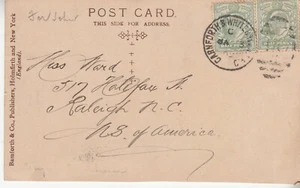 For John
POST CARD.
THIS SIDE FOR ADDRESS.
Miss Ward
517 Halifax St
Raleigh N.C.
U.S. of America.
Bamforth & Co., Publishers, Holmfirth and New York
(England).
CARNFORTH & WHITEHAVEN